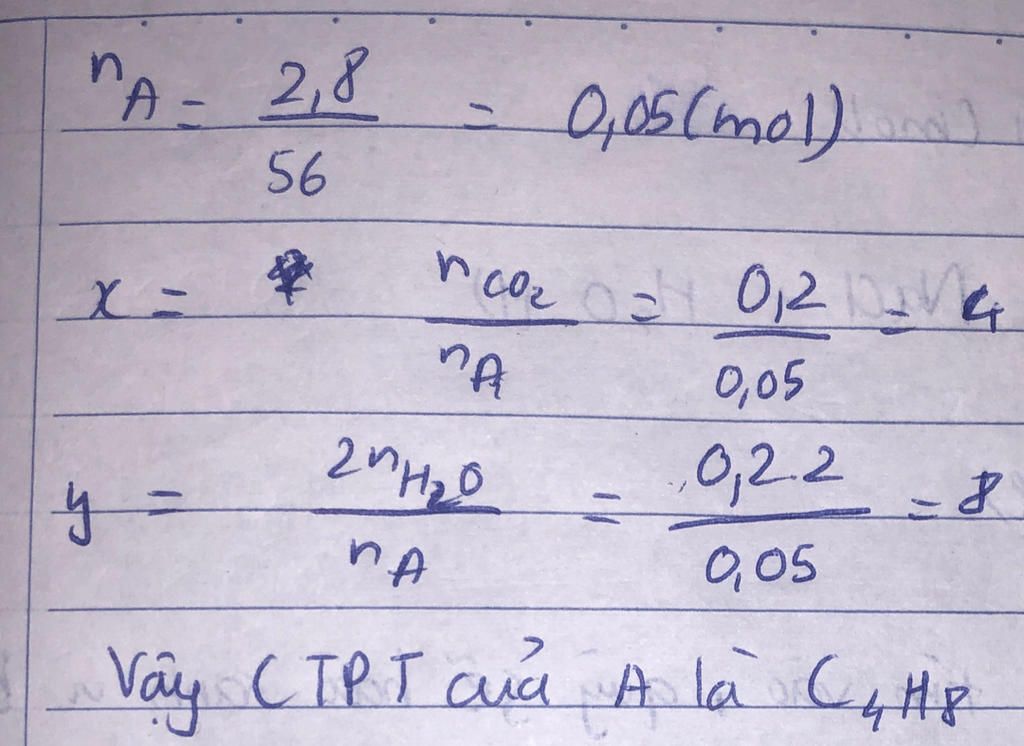 n_A = 2,8/56 = 0,05 (mol)
x = n_CO₂/n_A = 0,2/0,05 = 4
y = 2n_H₂O/n_A = 0,2.2/0,05 = 8
Vậy CTPT của A là C₄H₈